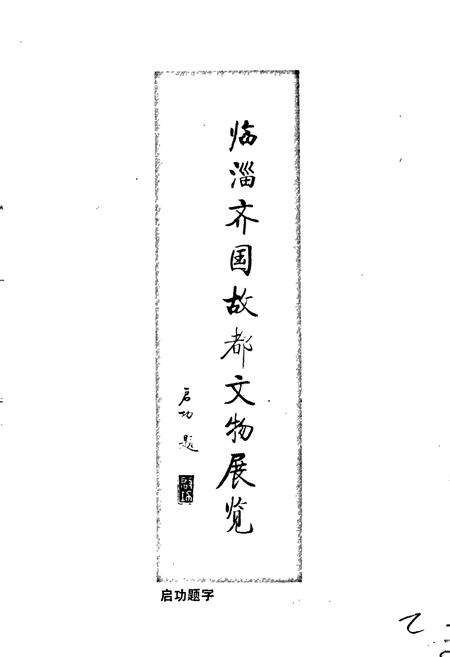 临淄齐国故都文物展览
启功题
启功题字